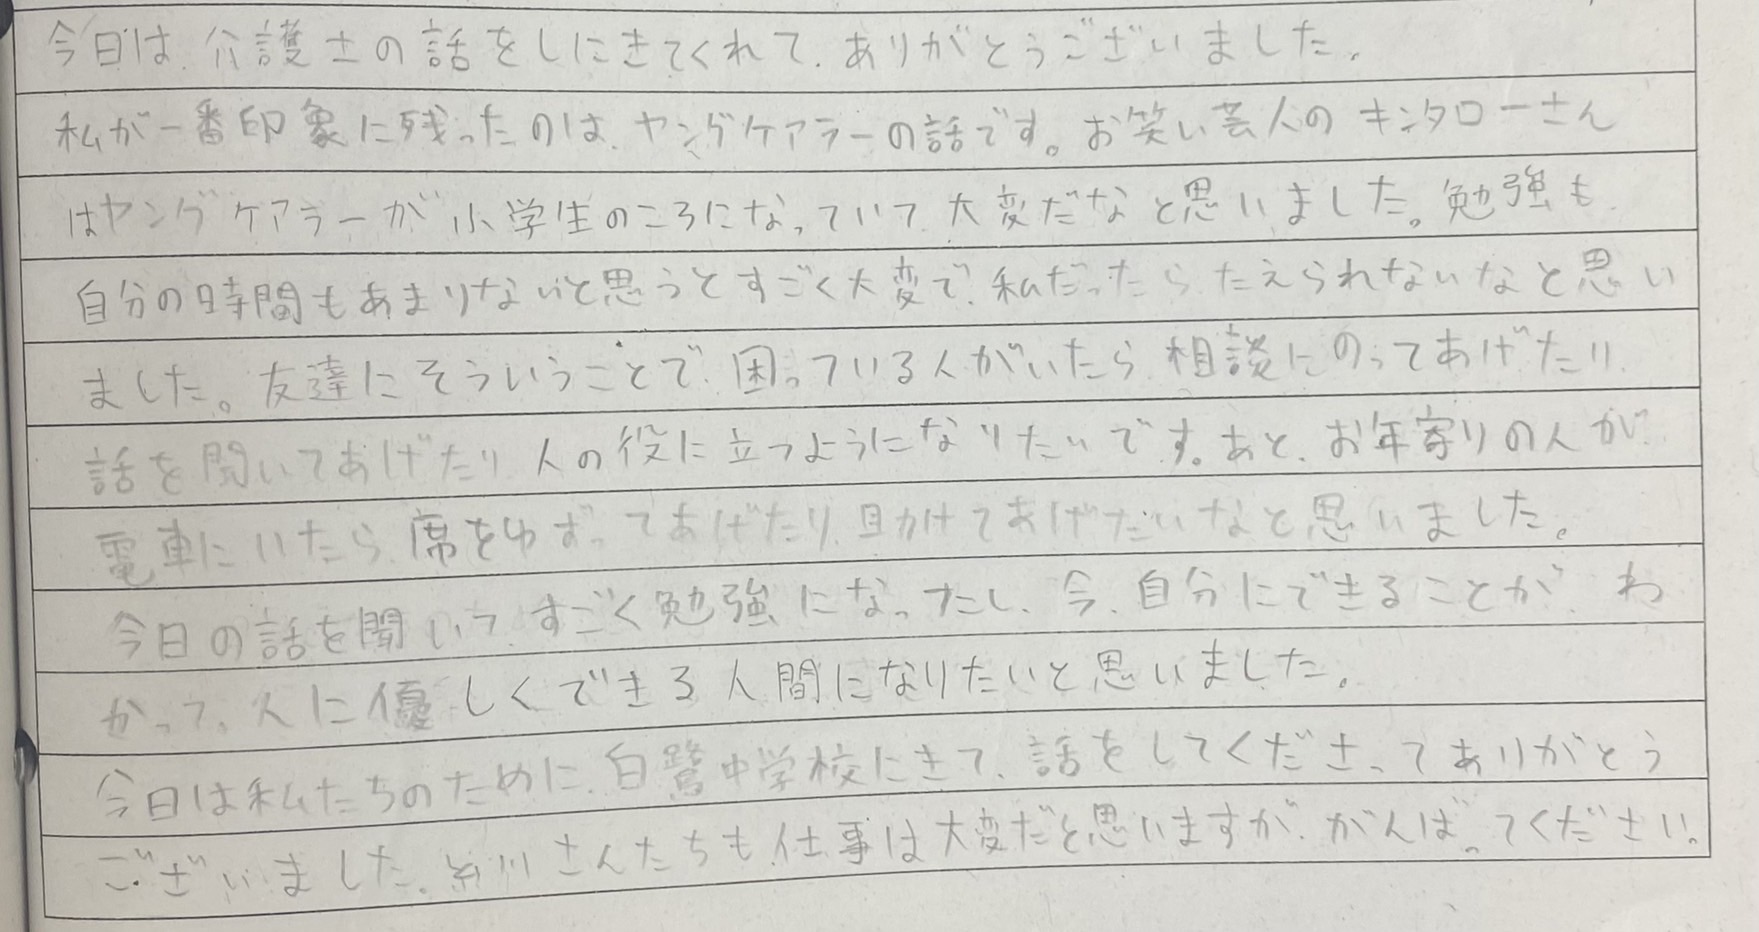 今日は、介護士の話をしにきてくれて、ありがとうございました。
私が一番印象に残ったのは、ヤングケアラーの話です。お笑い芸人のキンタローさん
はヤングケアラーが小学生のころになっていて、大変だなと思いました。勉強も
自分の時間もあまりないと思うとすごく大変で、私だったらたえられないなと思い
ました。友達にそういうことで、困っている人がいたら、相談にのってあげたり、
話を聞いてあげたり、人の役に立つようになりたいです。あと、お年寄りの人が
電車にいたら、席をゆずってあげたり、助けてあげたいなと思いました。
今日の話を聞いて、すごく勉強になったし、今、自分にできることが、わ
かって、人に優しくできる人間になりたいと思いました。
今日は私たちのために、白鷺中学校にきて、話をしてくださってありがとう
ございました。さんたちも、仕事は大変だと思いますが、がんばってください。